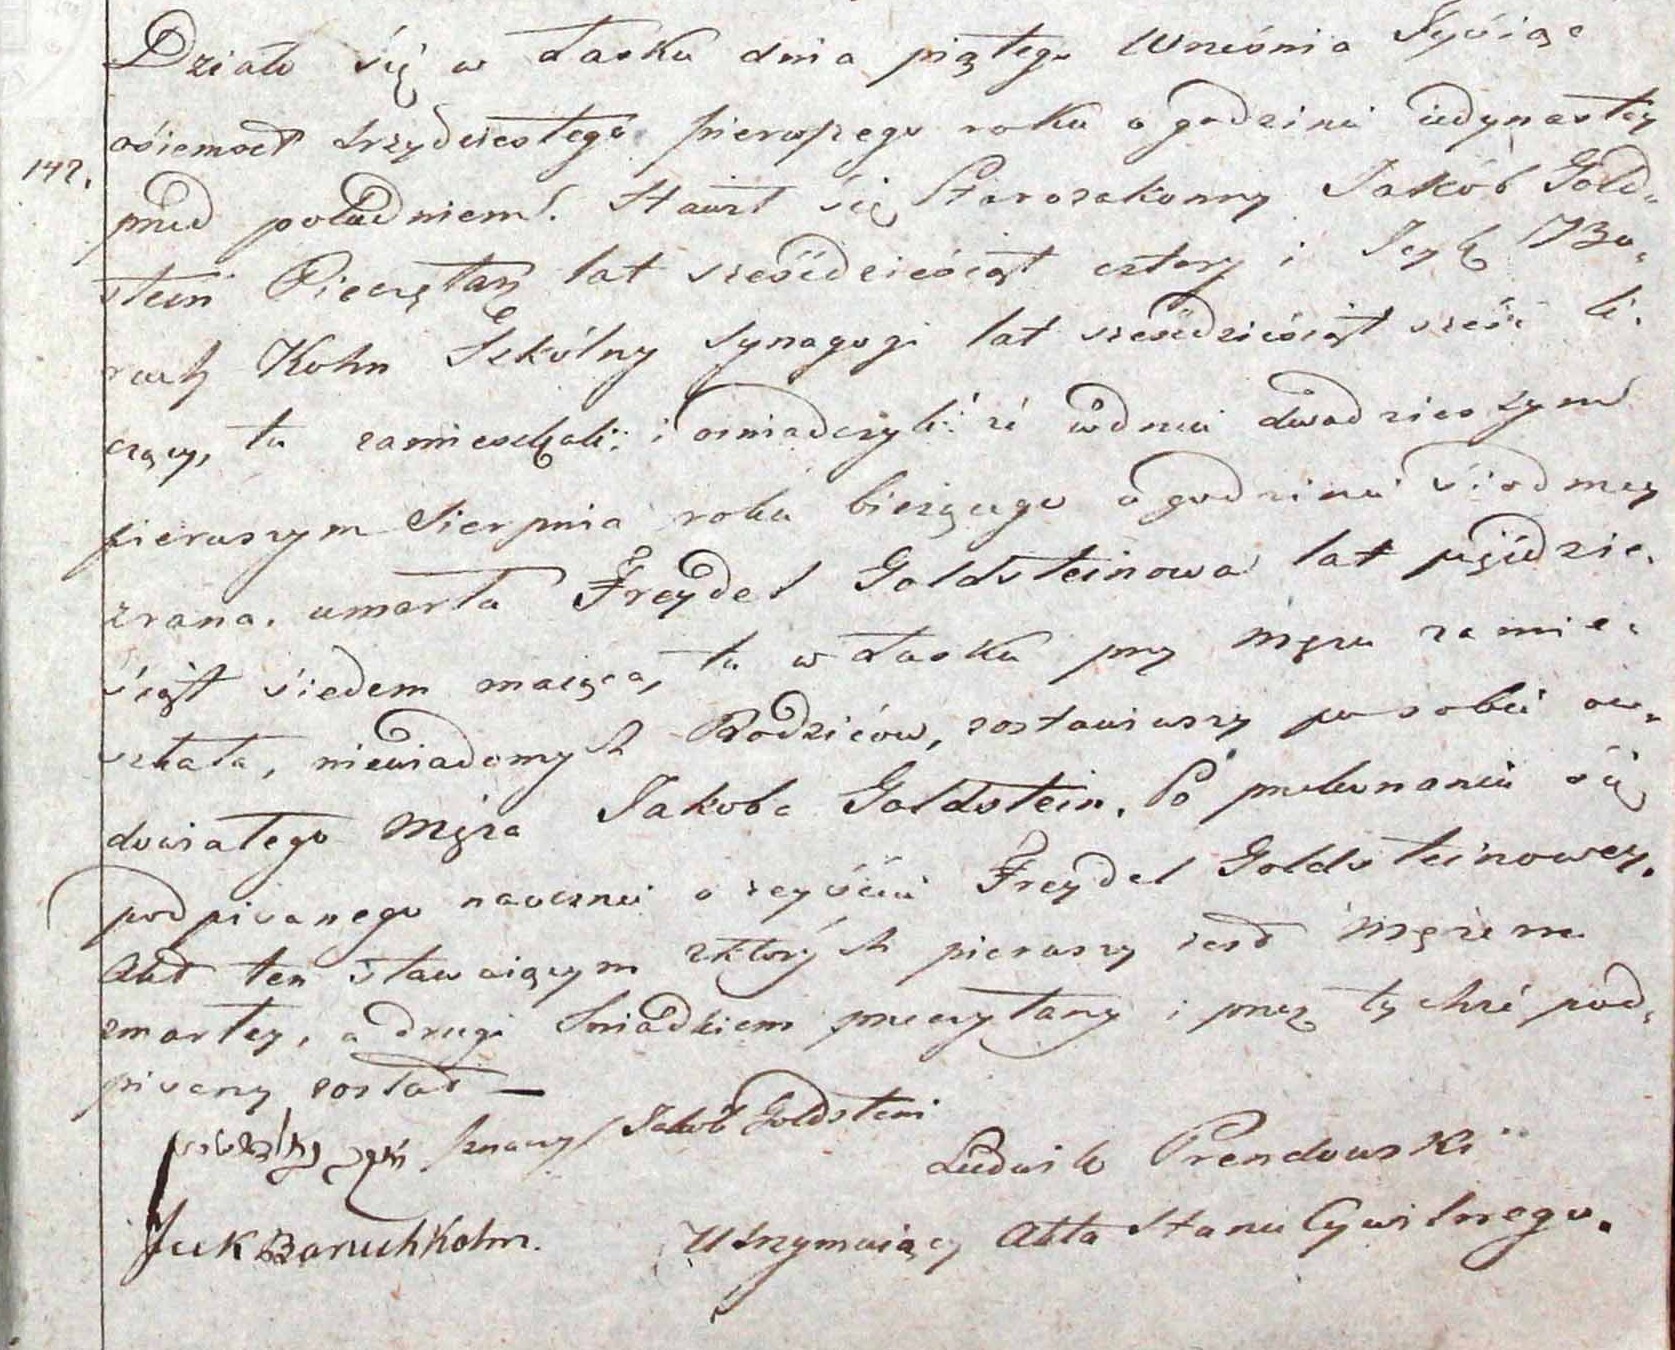 Działo się w Łasku dnia piątego Września Tysiąc
ośiemset trzydziestego pierwszego roku o godzinie iedynastey
przed południem. Stawił się Starozakonny Jakób Gold-
stein Pieczętarz lat sześćdziesiąt cztery i Icyk Ba-
ruch Kohn Szkólny Synagogi lat sześćdziesiąt sześć li-
czący, tu zamieszkali i oświadczyli: iż w dniu dwadziestym
pierwszym Sierpnia roku bieżącego o godzinie siódmey
zrana. umarła Freydel Goldsteinowa lat pięćdzie-
siąt siedem maiąca, tu w Łasku przy Mężu zamie-
szkała, niewiadomych Rodziców, zostawiwszy po sobie ow-
dowiałego Męża Jakoba Goldstein. Po przekonaniu się
podpisanego naocznie o zeyściu Freydel Goldsteinowey.
Akt ten stawaiącym z których pierwszy iest Mężem
zmarłey, a drugi Świadkiem przeczytany i przez tychże pod-
pisany został —
142.
/znaczy/ Jakób Goldstein
Ludwik Prendowski
Icek Baruch Kohn.
Utrzymuiący Akta Stanu Cywilnego.